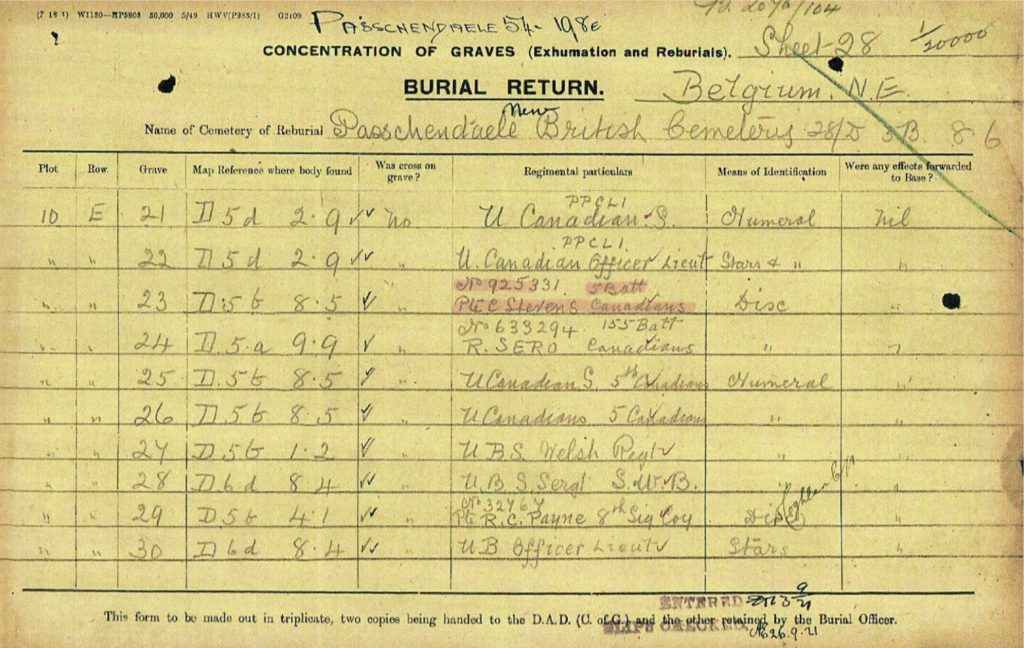 (7 18 1) W1180—HP5903 50,000 5/49 HWV(P365/1) G2109
PASSCHENDAELE 54-198e
CONCENTRATION OF GRAVES (Exhumation and Reburials). Sheet 28 1/20000
BURIAL RETURN. Belgium. N.E.
Name of Cemetery of Reburial Passchendaele New British Cemetery 28/D 5B 8 6
Plot Row. Grave Map Reference where body found Was cross on grave? Regimental particulars Means of Identification Were any effects forwarded to Base?
PPCLI
10 E 21 D 5 d 2.9 ✓✓ No U Canadian. S. Numeral Nil
PPCLI.
" " 22 D 5 d 2.9 ✓✓ " U. Canadian Officer Lieut Stars & " "
No 925331. 5 Batt
" " 23 D.5b 8.5 ✓ " Pte C Stevens Canadians Disc "
No 633294 155 Batt
" " 24 D.5.a 9.9 ✓ " R. SERO Canadians "
" " 25 D.5b 8.5 ✓ " U Canadian S. 5th Canadians Numeral "
" " 26 D.5b 8.5 ✓ " U Canadians 5 Canadians " "
" " 27 D 5b 1.2 ✓ " U.B.S. Welsh Regt " "
" " 28 D.6d 8.4 ✓✓ " U.B.S Sergt S.W.B. " "
" " 29 D 5b 4.1 ✓✓ " Pte R.C. Payne 8th Sig Coy Disc "
" " 30 D 6d 8.4 ✓✓ " U B Officer Lieut Stars "
ENTERED
This form to be made out in triplicate, two copies being handed to the D.A.D. (C. of G.) and the other retained by the Burial Officer.
SLIPS CHECKED 26.9.21